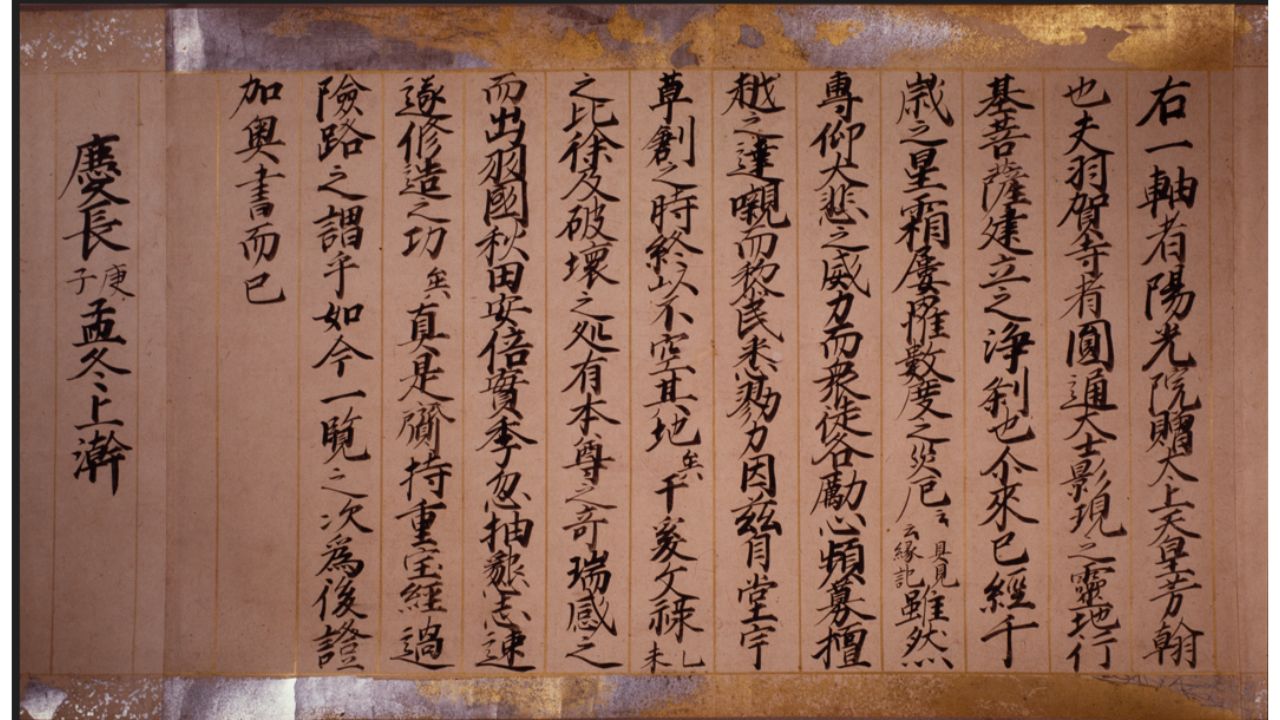 右一軸者陽光院贈太上天皇芳翰
也夫羽賀寺者圓通大士影現之靈地行
基菩薩建立之浄刹也尒來已經千
歳之星霜屡罹數度之災厄云云具見縁記雖然
專仰大悲之威力而衆徒各勵心頻募檀
越之達嚫而黎民悉勠力因茲月堂宇
草創之時終以不空其地矣于爰文禄乙未
之比徐及破壞之処有本尊之奇瑞感之
而出羽國秋田安倍實季忽抽懇志速
遂修造之功矣真是齎持重宝經過
險路之謂乎如今一覧之次為後證
加奥書而已
慶長庚子孟冬上澣